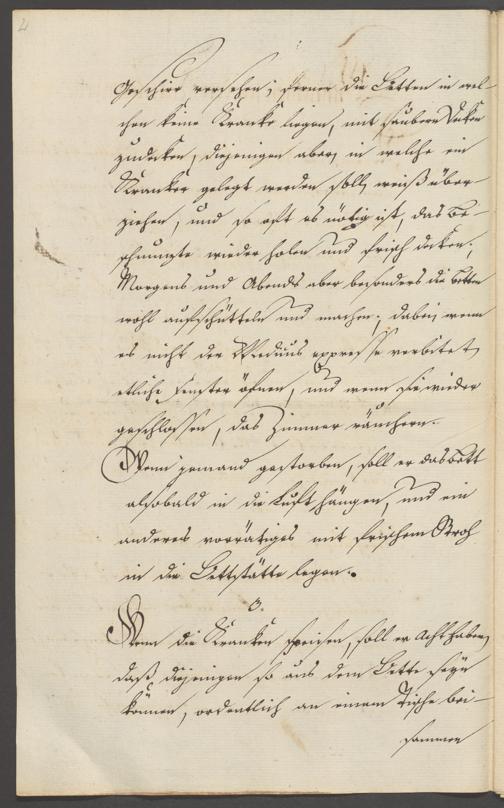 Geschirr versehen; ferner die Betten in wel-
chen keine Kranke liegen, mit saubern Deken
zudecken, diejenigen aber, in welche ein
Kranker gelegt werden soll, weiß über-
ziehen, und so oft es nötig ist, das Be-
schmuzte wieder holen und frisch deken;
Morgens und Abends aber besonders die Betten
wohl aufschütteln und machen; dabei wenn
es nicht der Medicus expresse verbietet,
etliche Fenster öfnen, und wenn sie wieder
geschlossen, das Zimmer räuchern.
Wenn jemand gestorben, soll er das Bett
alsobald in die Luft hängen, und ein
anderes vorrätiges mit frischem Stroh
in die Bettstätte legen.
3.
Wenn die Kranken speisen, soll er Acht haben,
daß diejenigen so aus dem Bette seyn
können, ordentlich an einem Tische bei-
sammen